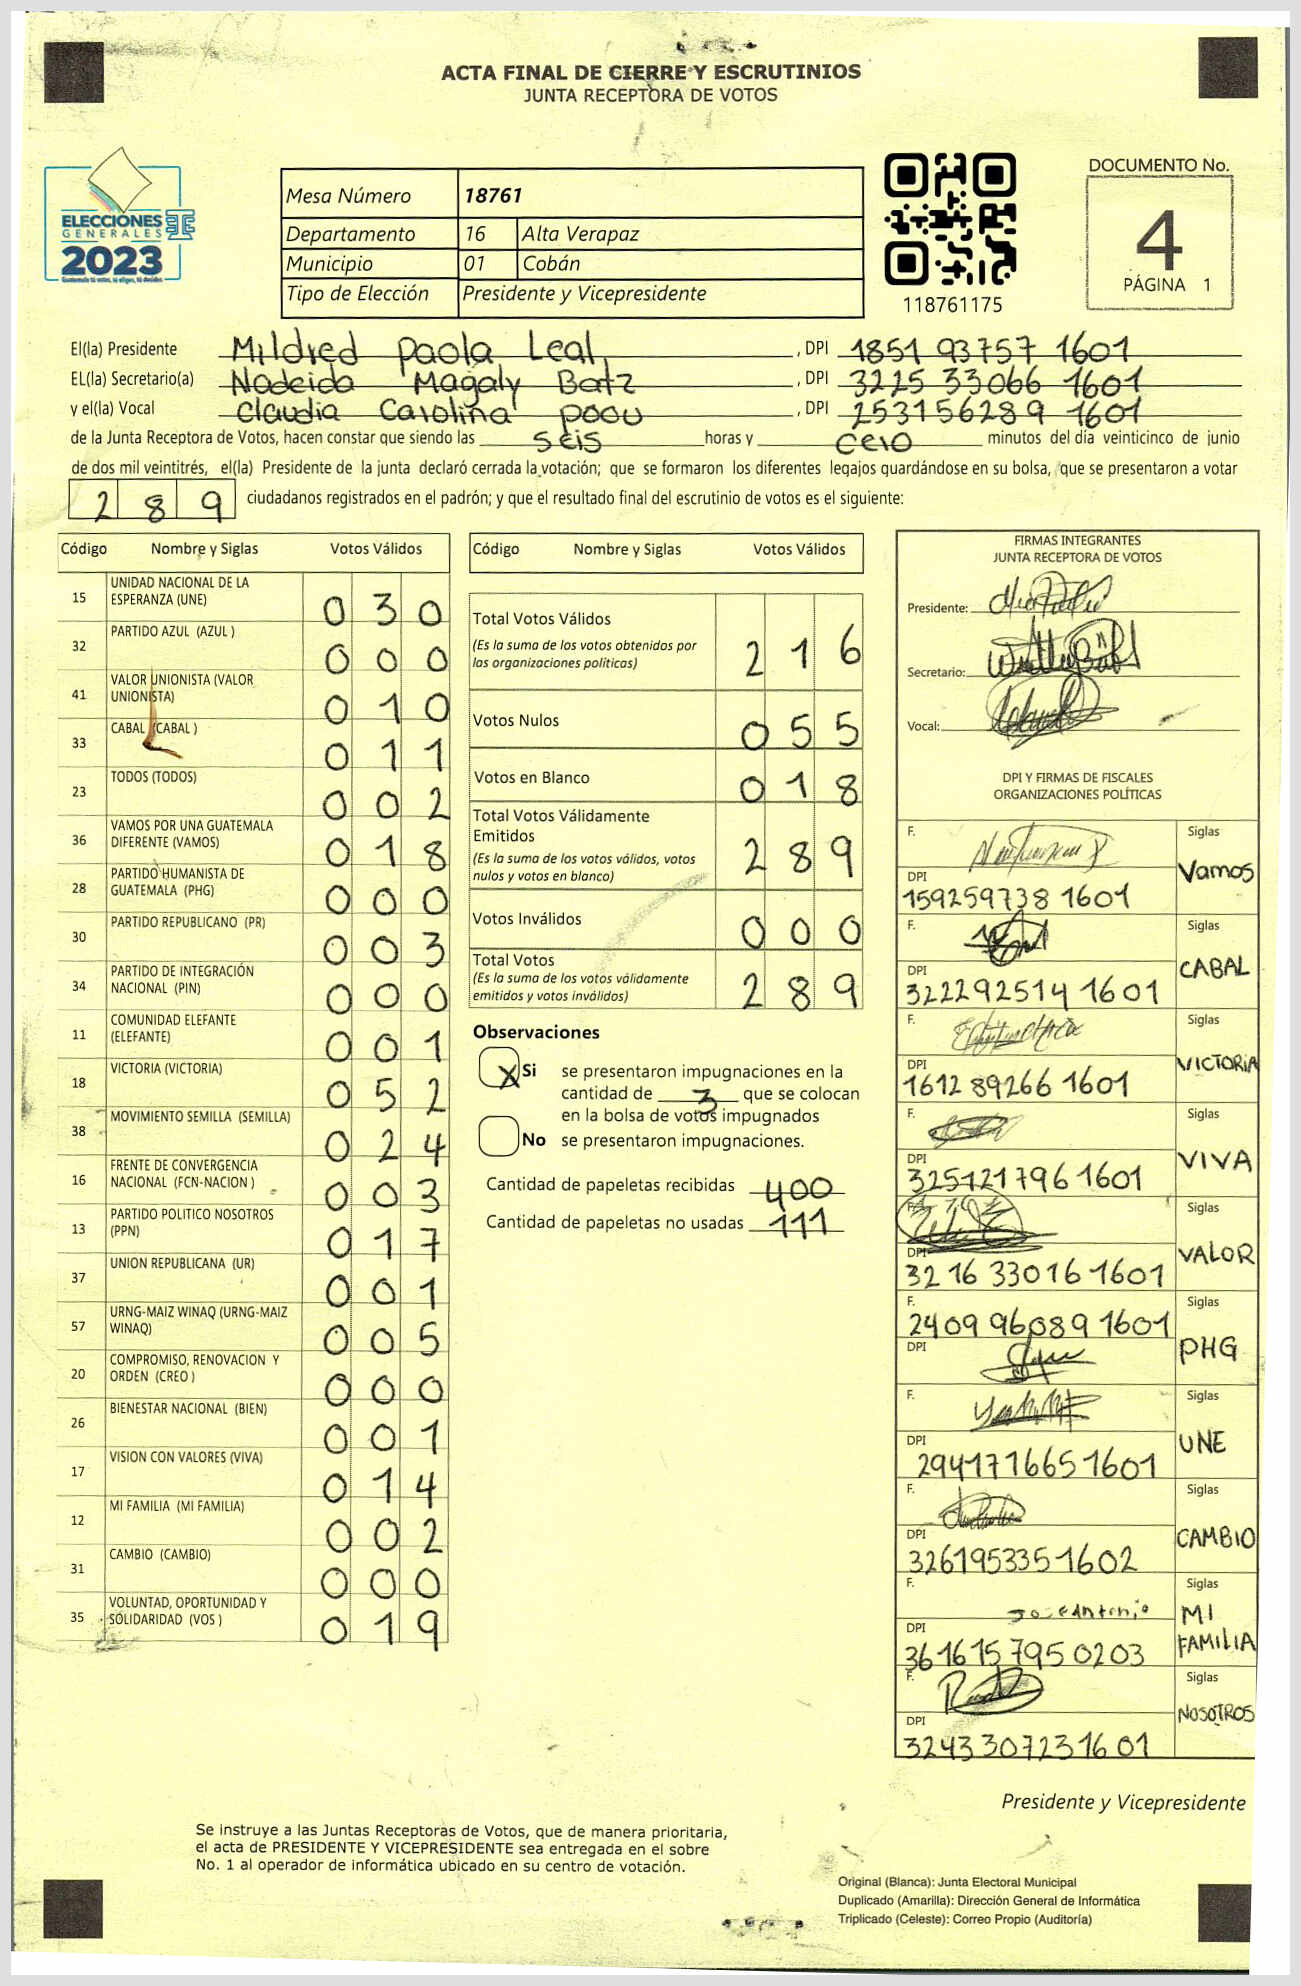 ACTA FINAL DE CIERRE Y ESCRUTINIOS
JUNTA RECEPTORA DE VOTOS
ELECCIONES
GENERALES
2023
Mesa Número 18761
Departamento 16 Alta Verapaz
Municipio 01 Cobán
Tipo de Elección Presidente y Vicepresidente
118761175
DOCUMENTO No.
4
PÁGINA 1
El(la) Presidente Mildred Paola Leal , DPI 1851 93757 1601
EL(la) Secretario(a) Nadeida Magaly Batz , DPI 3225 33066 1601
y el(la) Vocal Claudia Carolina Poou , DPI 253156289 1601
de la Junta Receptora de Votos, hacen constar que siendo las seis horas y cero minutos del día veinticinco de junio
de dos mil veintitrés, el(la) Presidente de la junta declaró cerrada la votación; que se formaron los diferentes legajos guardándose en su bolsa, que se presentaron a votar
289 ciudadanos registrados en el padrón; y que el resultado final del escrutinio de votos es el siguiente:
Código Nombre y Siglas Votos Válidos
15 UNIDAD NACIONAL DE LA
ESPERANZA (UNE) 030
32 PARTIDO AZUL (AZUL ) 000
41 VALOR UNIONISTA (VALOR
UNIONISTA) 010
33 CABAL (CABAL ) 011
23 TODOS (TODOS) 002
36 VAMOS POR UNA GUATEMALA
DIFERENTE (VAMOS) 018
28 PARTIDO HUMANISTA DE
GUATEMALA (PHG) 000
30 PARTIDO REPUBLICANO (PR) 003
34 PARTIDO DE INTEGRACIÓN
NACIONAL (PIN) 000
11 COMUNIDAD ELEFANTE
(ELEFANTE) 001
18 VICTORIA (VICTORIA) 052
38 MOVIMIENTO SEMILLA (SEMILLA) 024
16 FRENTE DE CONVERGENCIA
NACIONAL (FCN-NACION ) 003
13 PARTIDO POLITICO NOSOTROS
(PPN) 017
37 UNION REPUBLICANA (UR) 001
57 URNG-MAIZ WINAQ (URNG-MAIZ
WINAQ) 005
20 COMPROMISO, RENOVACION Y
ORDEN (CREO ) 000
26 BIENESTAR NACIONAL (BIEN) 001
17 VISION CON VALORES (VIVA) 014
12 MI FAMILIA (MI FAMILIA) 002
31 CAMBIO (CAMBIO) 000
35 VOLUNTAD, OPORTUNIDAD Y
SOLIDARIDAD (VOS ) 019
Código Nombre y Siglas Votos Válidos
Total Votos Válidos 216
(Es la suma de los votos obtenidos por
las organizaciones políticas)
Votos Nulos 055
Votos en Blanco 018
Total Votos Válidamente
Emitidos 289
(Es la suma de los votos válidos, votos
nulos y votos en blanco)
Votos Inválidos 000
Total Votos 289
(Es la suma de los votos válidamente
emitidos y votos inválidos)
Observaciones
X Si se presentaron impugnaciones en la
cantidad de 3 que se colocan
en la bolsa de votos impugnados
No se presentaron impugnaciones.
Cantidad de papeletas recibidas 400
Cantidad de papeletas no usadas 111
FIRMAS INTEGRANTES
JUNTA RECEPTORA DE VOTOS
Presidente:
Secretario:
Vocal:
DPI Y FIRMAS DE FISCALES
ORGANIZACIONES POLÍTICAS
F. Siglas
DPI Vamos
159259738 1601
F. Siglas
DPI CABAL
322292514 1601
F. Siglas
DPI VICTORIA
1612 89266 1601
F. Siglas
DPI VIVA
325121796 1601
Siglas
DPI VALOR
32 16 33016 1601
F. Siglas
2409 96089 1601
DPI PHG
F. Siglas
DPI UNE
294171665 1601
F. Siglas
DPI CAMBIO
326195335 1602
F. Siglas
Jose Antonio MI
DPI FAMILIA
36 16 15 795 0203
F. Siglas
DPI NOSOTROS
3243307231601
Presidente y Vicepresidente
Se instruye a las Juntas Receptoras de Votos, que de manera prioritaria,
el acta de PRESIDENTE Y VICEPRESIDENTE sea entregada en el sobre
No. 1 al operador de informática ubicado en su centro de votación.
Original (Blanca): Junta Electoral Municipal
Duplicado (Amarilla): Dirección General de Informática
Triplicado (Celeste): Correo Propio (Auditoría)